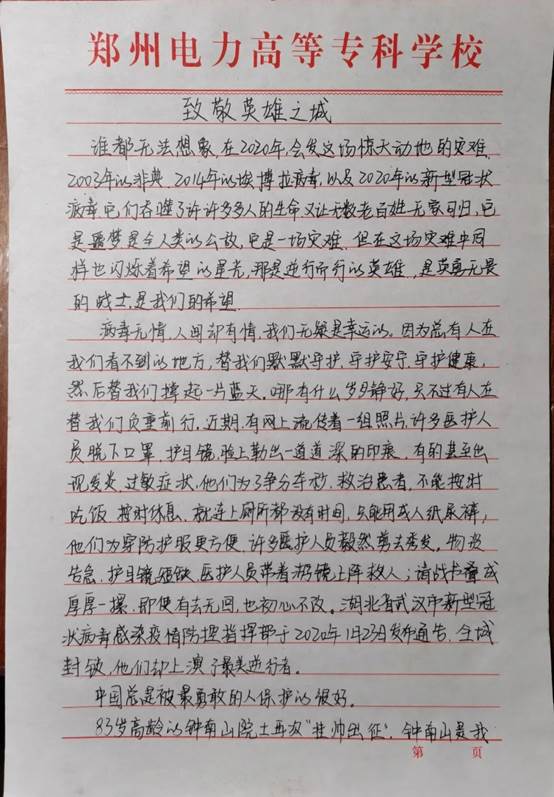 郑州电力高等专科学校
致敬英雄之城
谁都无法想象,在2020年,会发这场惊天动地的灾难,
2003年的非典,2014年的埃博拉病毒,以及2020年的新型冠状
病毒它们吞噬了许许多多人的生命又让无数老百姓无家可归,它
是噩梦是全人类的公敌,它是一场灾难,但在这场灾难中同
样也闪烁着希望的星光,那是逆行所行的英雄,是英勇无畏
的战士,是我们的希望.
病毒无情,人间却有情,我们无疑是幸运的。因为总有人在
我们看不到的地方,替我们默默守护,守护安宁,守护健康,
然后替我们撑起一片蓝天。哪有什么岁月静好,只不过有人在
替我们负重前行。近期,有网上流传着一组照片,许多医护人
员脱下口罩,护目镜,脸上勒出一道道深的印痕,有的甚至出
现发炎,过敏症状,他们为了争分夺秒,救治患者,不能按时
吃饭,按时休息,就连上厕所都没有时间,只能用成人纸尿裤,
他们为穿防护服更方便,许多医护人员毅然剪去秀发。物资
告急,护目镜短缺,医护人员带着泳镜上阵救人;请战书叠成
厚厚一摞,即使有去无回,也初心不改。湖北省武汉市新型冠
状病毒感染疫情防控指挥部于2020年1月23日发布通告,全城
封锁,他们却上演了最美逆行者。
中国总是被最勇敢的人保护的很好。
83岁高龄的钟南山院士再次“挂帅出征”,钟南山是我
第 页